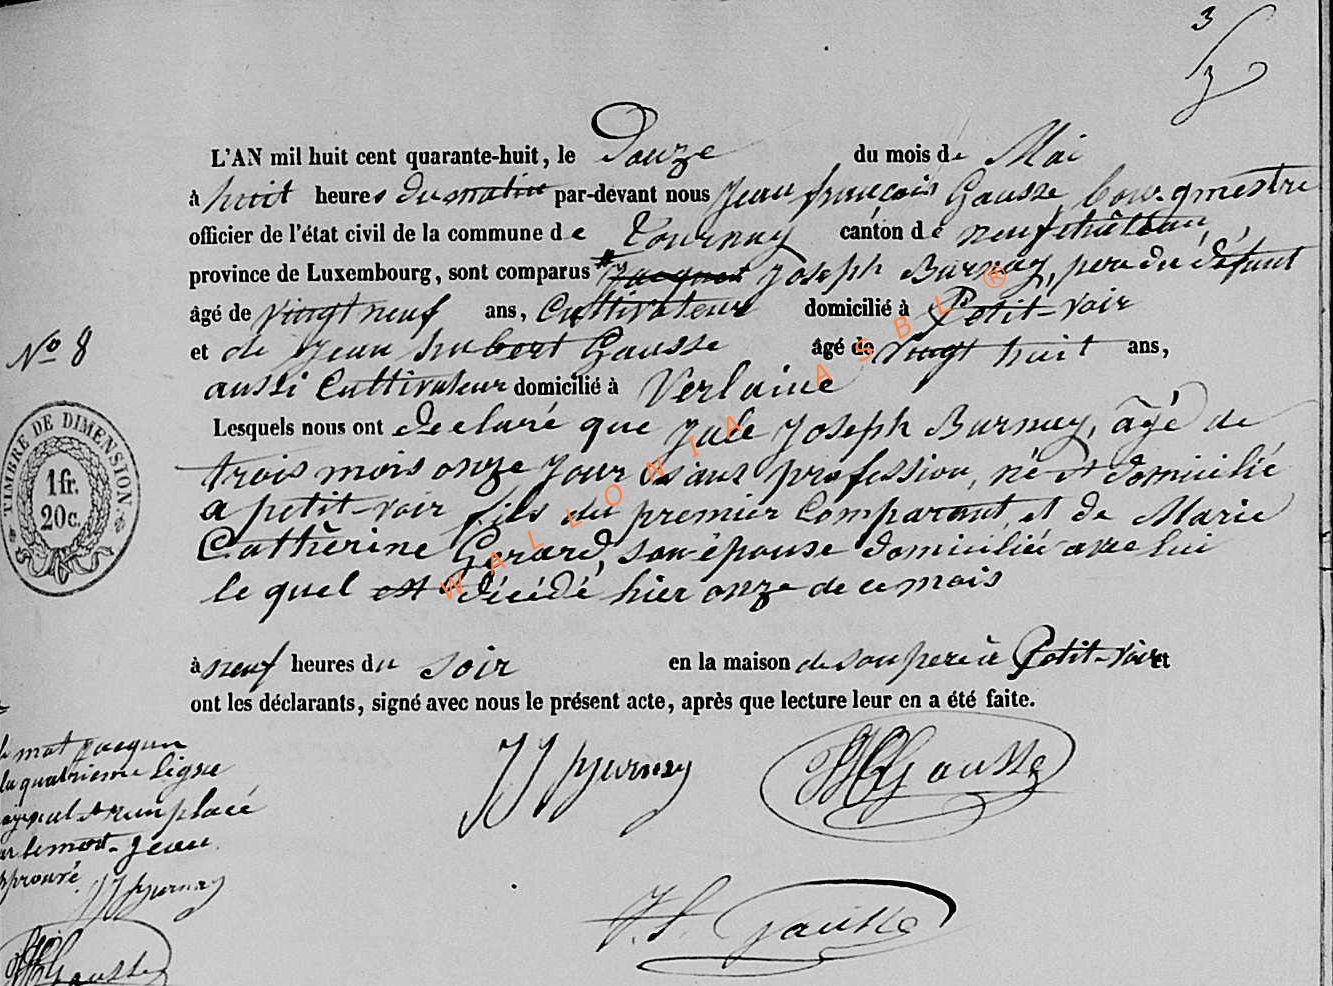 3
3
L'AN mil huit cent quarante-huit, le Douze du mois de Mai
à huit heures du matin par-devant nous Jean françois Gausse bourgmestre
officier de l'état civil de la commune de Tournay canton de neufchâteau,
province de Luxembourg, sont comparus * Jacques Joseph Burnay, pere du défunt
âgé de vingt neuf ans, Cultivateur domicilié à Petit-voir
et de Jean hubert Gausse âgé de vingt huit ans,
N° 8
aussi Cultivateur domicilié à Verlaine
Lesquels nous ont declaré que Jule Joseph Burnay, âgé de
trois mois onze jour sans profession, né et domicilié
a petit-voir fils du premier Comparant et de Marie
Cathèrine Gerard, son épouse domiciliée avec lui
le quel est décédé hier onze de ce mois
à neuf heures du soir en la maison de son pere à Petit-voir et
ont les déclarants, signé avec nous le présent acte, après que lecture leur en a été faite.
TIMBRE DE DIMENSION.
1 fr.
20 c.
WALLONIA ASBL ®
mot Jacques
la quatrieme Ligne
et remplacé
le mot Jean
approuvé
JJ Burnay
JH Gausse
JJ Burnay
JH Gausse
J. f. Gausse